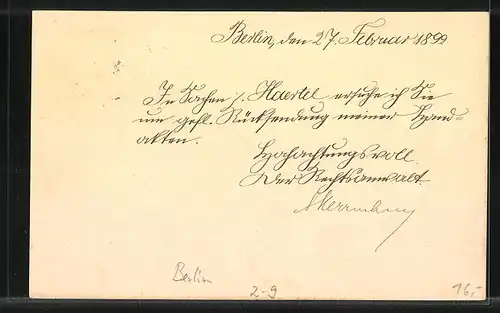 Berlin, den 27. Februar 1899
In Sachen j. Haertel ersuche ich Sie
um gefl. Rücksendung meiner Hand-
akten.
Hochachtungsvoll
Der Rechtsanwalt
Berlin
2-9
16,-